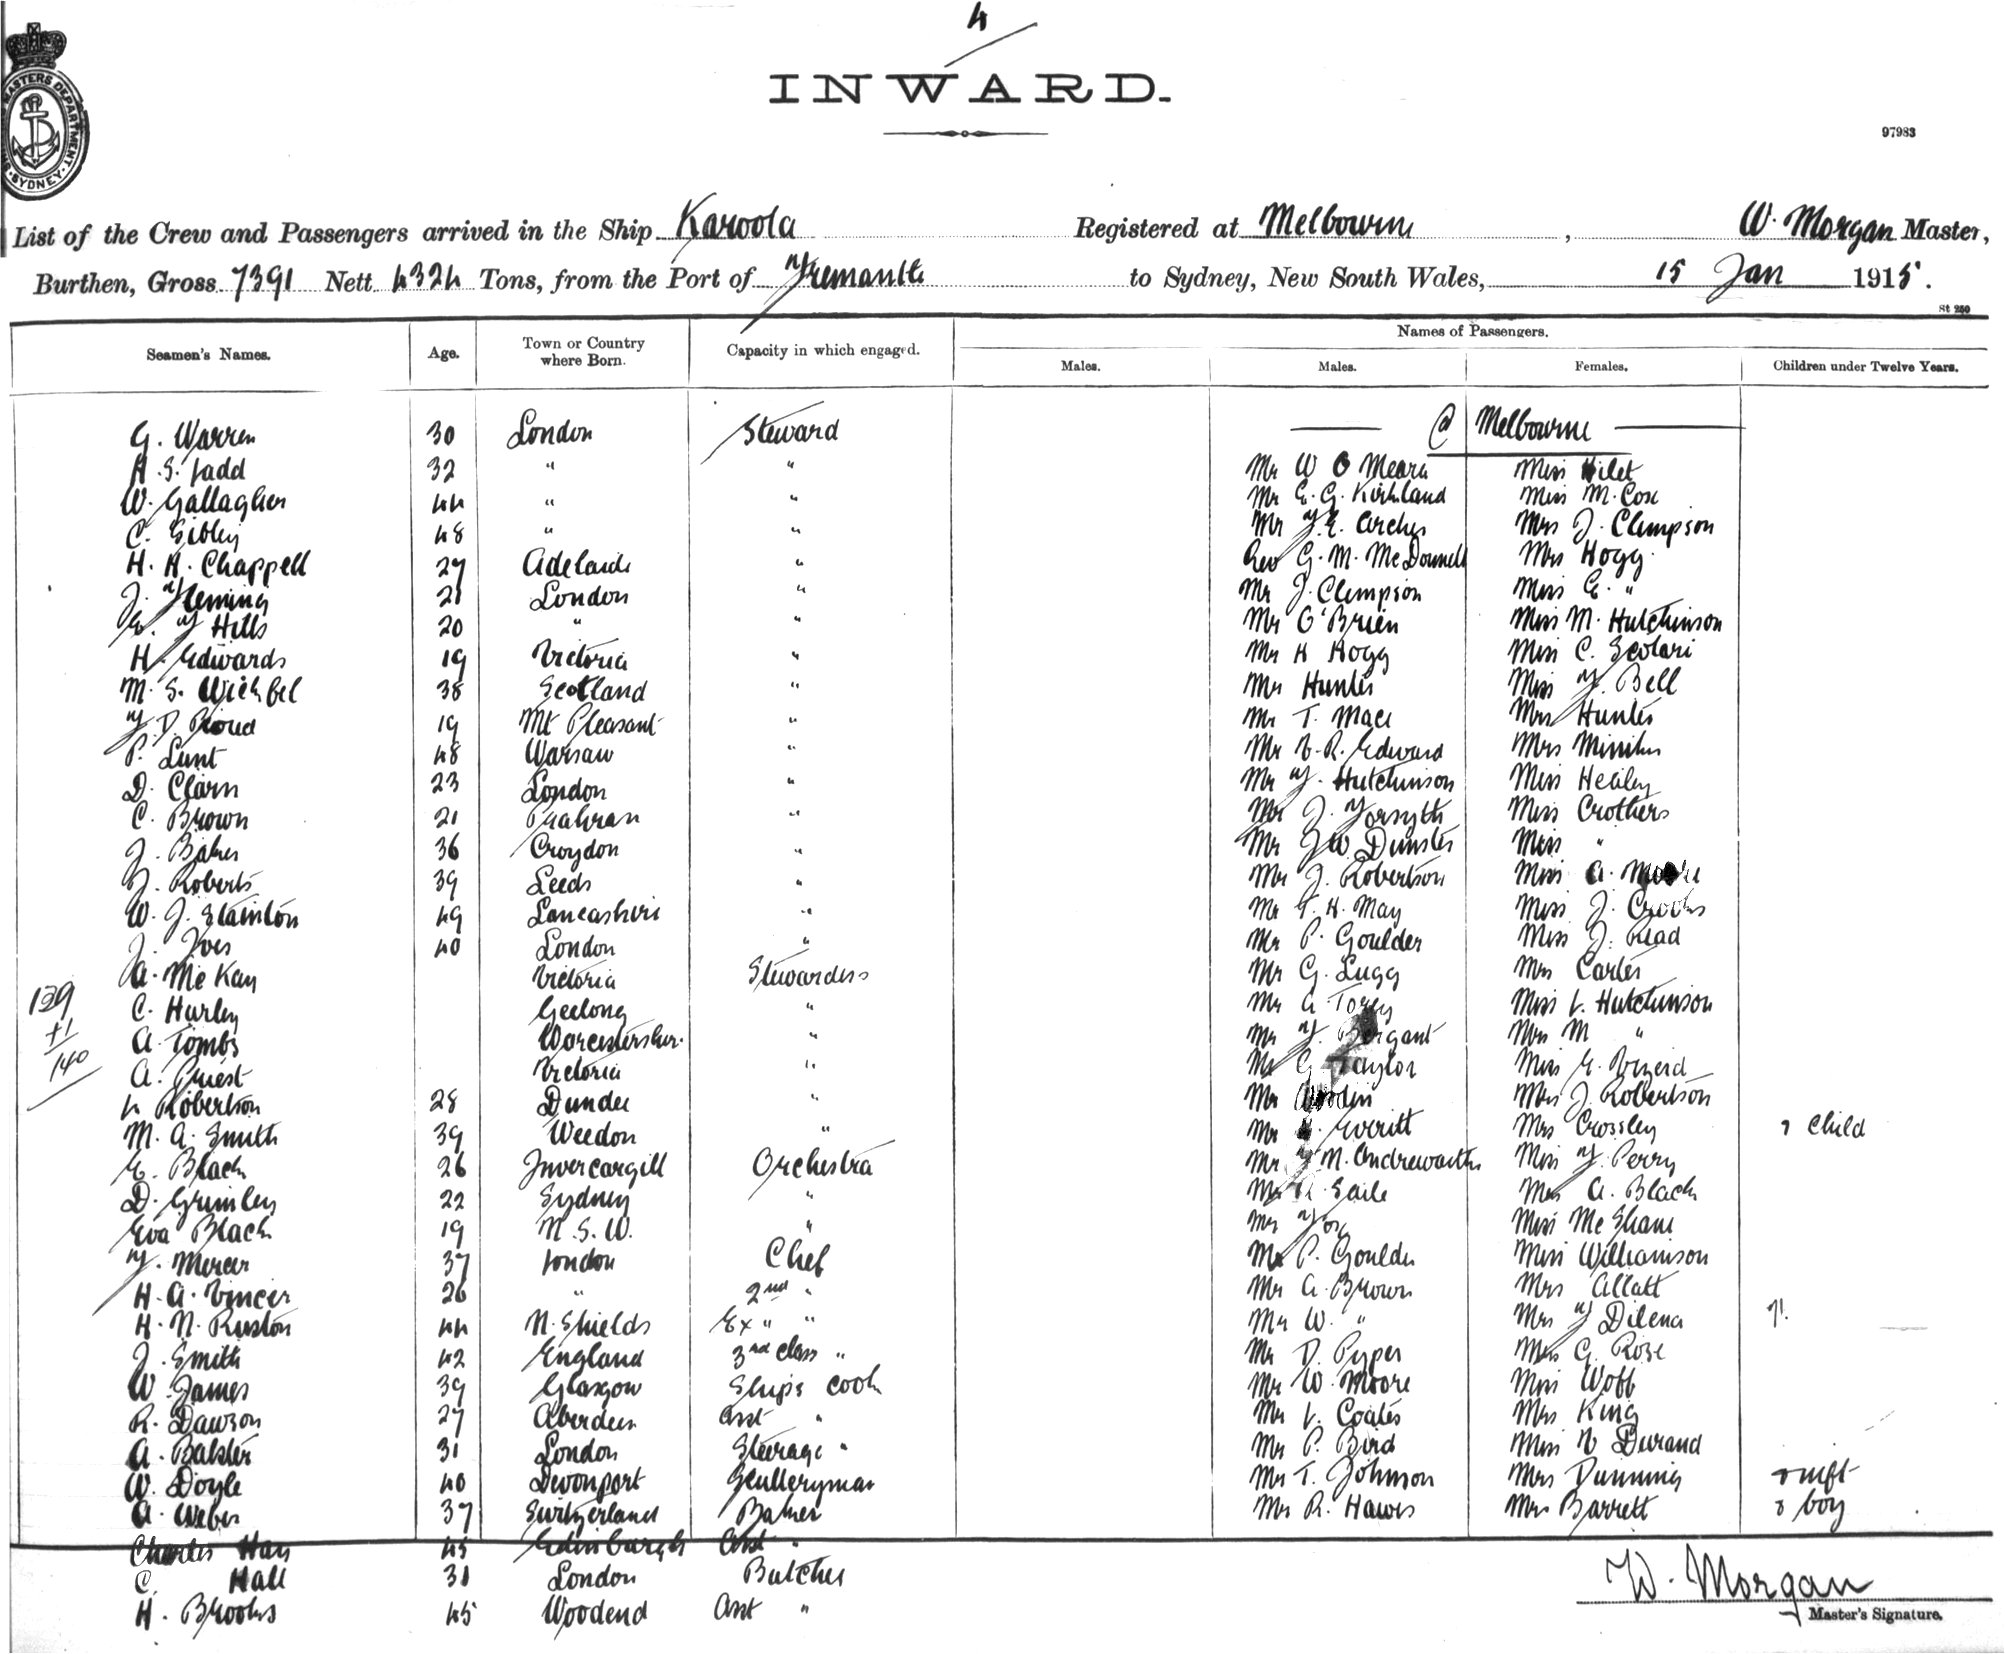 4
INWARD.
97983
MASTERS DEPARTMENT
SYDNEY
List of the Crew and Passengers arrived in the Ship Karoola Registered at Melbourne, W. Morgan Master,
Burthen, Gross 7391 Nett 4324 Tons, from the Port of Fremantle to Sydney, New South Wales, 15 Jan 1915.
St 250
Seamen's Names. Age. Town or Country where Born. Capacity in which engaged. Names of Passengers.
Males. Males. Females. Children under Twelve Years.
G. Warren 30 London Steward @ Melbourne
H. S. Ladd 32 " " Mr W O Meara Miss
W. Gallagher 44 " " Mr E. G. Kirkland Miss M. Cox
C. Sibley 48 " " Mr F. E. Archer Mrs J. Clempson
H. H. Chappell 27 Adelaide " Rev G. M. McDonnell Mrs Hogg
J. Fleming 21 London " Mr J. Clempson Miss E. "
F Hills 20 " " Mr O'Brien Miss M. Hutchinson
H. Edwards 19 Victoria " Mr H Hogg Miss C. Scolari
M. S. 38 Scotland " Mr Hunter Miss F. Bell
F. D. Proud 19 Mt Pleasant " Mr T. Mace Mrs Hunter
P. Lunt 48 Warsaw " Mr R. Edward Mrs
D. Clarn 23 London " Mr F. Hutchinson Miss Healey
C. Brown 21 Prahran " Mr J. Forsyth Miss Crothers
J. Baker 36 Croydon " Mr J W Dunster Miss "
J. Roberts 39 Leeds " Mr J. Robertson Miss A. Moore
W. J. Stainton 49 Lancashire " Mr T. H. May Miss J.
J. Ives 40 London " Mr P. Goulder Miss J. Read
A. McKay Victoria Stewardess Mr G. Lugg Mrs Carter
139 C. Hurley Geelong " Mr A Miss L. Hutchinson
+1 A. Tombs " Mr F. Mrs M "
140 A. Priest Victoria " Mr G Taylor Miss E.
L Robertson 28 Dundee " Mr Mrs J. Robertson
M. A. Smith 39 Weedon " Mr Everitt Mrs Crossley 1 child
E. Black 26 Invercargill Orchestra Mr M. Andrewartha Miss F. Perry
D. Grimley 22 Sydney " Mr Saile Mrs A. Black
Eva Black 19 N. S. W. " Mr Fox Miss McShane
F. Mercer 37 London Chef Mr P. Goulder Miss Williamson
H. A. Vincer 26 " 2nd " Mr A. Brown Mrs Allatt
H. N. Ruston 44 N. Shields Ex " " Mr W. " Mrs F Dilena
J. Smith 42 England 3rd class " Mr D. Pyper G. Rose
W. James 39 Glasgow Ships cook Mr W. Moore Miss Wobb
R. Dawson 27 Aberdeen Asst " Mr L. Coates Mrs King
A. Balster 31 London Steerage " Mr P. Bird Miss Durand
W. Doyle 40 Devonport Sculleryman Mr T. Johnson Mrs Dunning
A. Weber 37 Switzerland Baker Mr R. Hawes Mrs Barrett boy
Charles Hay 45 Edinburgh Asst "
C. Hall 31 London Butcher
H. Brooks 45 Woodend Asst "
W. Morgan
Master's Signature.